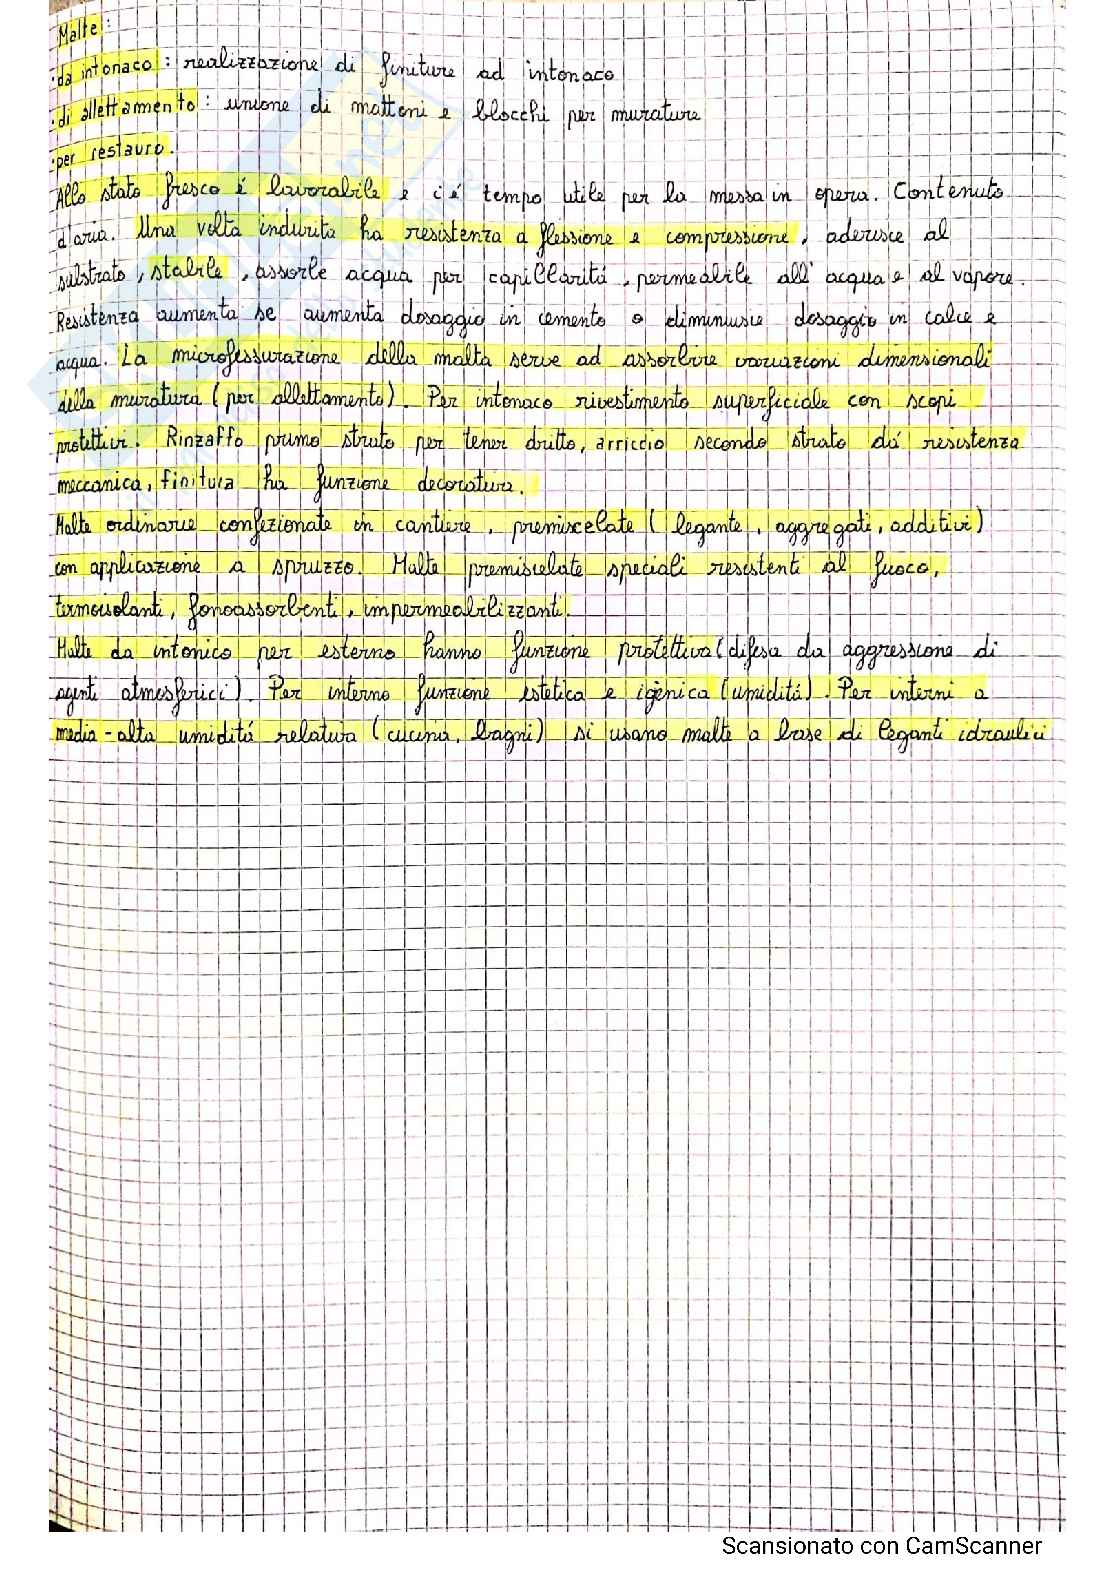 Malte:
·da intonaco: realizzazione di finiture ad intonaco
·di allettamento: unione di mattoni e blocchi per murature
·per restauro.
Allo stato fresco é lavorabile e c'é tempo utile per la messa in opera. Contenuto
d'aria. Una volta indurita ha resistenza a flessione e compressione, aderisce al
substrato, stabile, assorbe acqua per capillaritá, permeabile all'acqua e al vapore.
Resistenza aumenta se aumenta dosaggio in cemento o diminuisce dosaggio in calce e
acqua. La microfessurazione della malta serve ad assorbire variazioni dimensionali
della muratura (per allettamento). Per intonaco rivestimento superficiale con scopi
protettivi. Rinzaffo primo strato per tener dritto, arriccio secondo strato dá resistenza
meccanica, finitura ha funzione decorativa.
Malte ordinarie confezionate in cantiere, premiscelate (legante, aggregati, additivi)
con applicazione a spruzzo. Malte premiscelate speciali resistenti al fuoco,
termoisolanti, fonoassorbenti, impermeabilizzanti.
Malte da intonico per esterno hanno funzione protettiva (difesa da aggressione di
agenti atmosferici). Per interno funzione estetica e igenica (umiditá). Per interni a
media-alta umiditá relativa (cucina, bagni) si usano malte a base di leganti idraulici
Scansionato con CamScanner